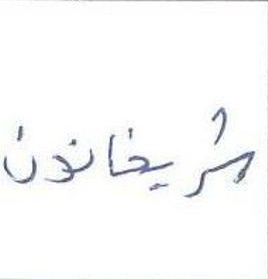 شريخانون